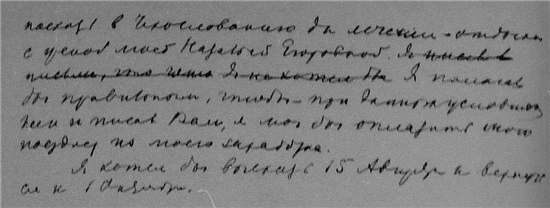 поехать в Чехословакию для лечения-отдыха
с женой моей Натальей Егоровной. Я писал в
письме, что Я не хотел бы Я полагал
бы правильным, чтобы при данных условиях,
и писал Вам, я мог бы оплатить свою
поездку из моего заработка.
Я хотел бы выехать 15 Августа и вернуть
ся к 1 Октября.